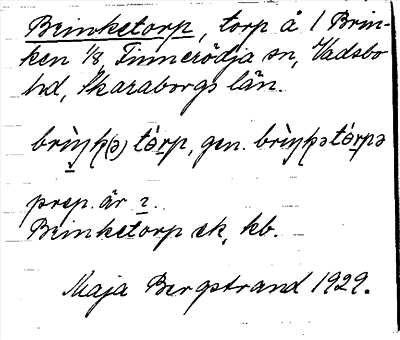 Brinketorp, torp å 1 Brin-
ken 1/8, Finnerödja sn, Vadsbo
hd, Skaraborgs län.
brìŋk(ə) tórp, gen. brìŋkətórpə
prep. är 2.
Brinketorp ek, kb.
Maja Bergstrand 1929.